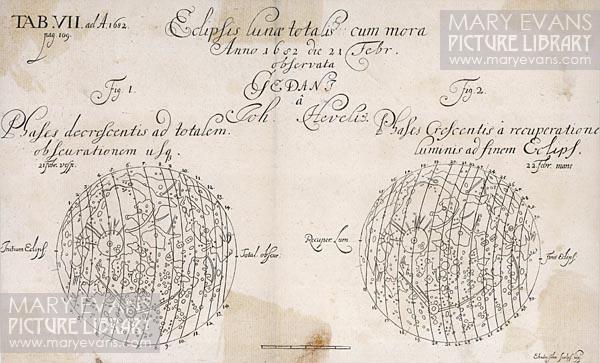 TAB. VII. ad A. 1682.
pag. 109.
Eclipsis lunæ totalis cum mora
Anno 1682 die 21 Febr.
observata
GEDANI
à
Joh. Hevelio.
Fig. 1.
Phases decrescentis ad totalem
obscurationem usq.
21 febr. vesp.
Initium Eclips.
Total obscur.
Fig. 2.
Phases Crescentis à recuperatione
luminis ad finem Eclips.
22 febr. mane
Recuper. lum.
finis Eclips.
MARY EVANS
PICTURE LIBRARY
www.maryevans.com
MARY EVANS
PICTURE LIBRARY
www.maryevans.com
MARY EVANS
PICTURE LIBRARY